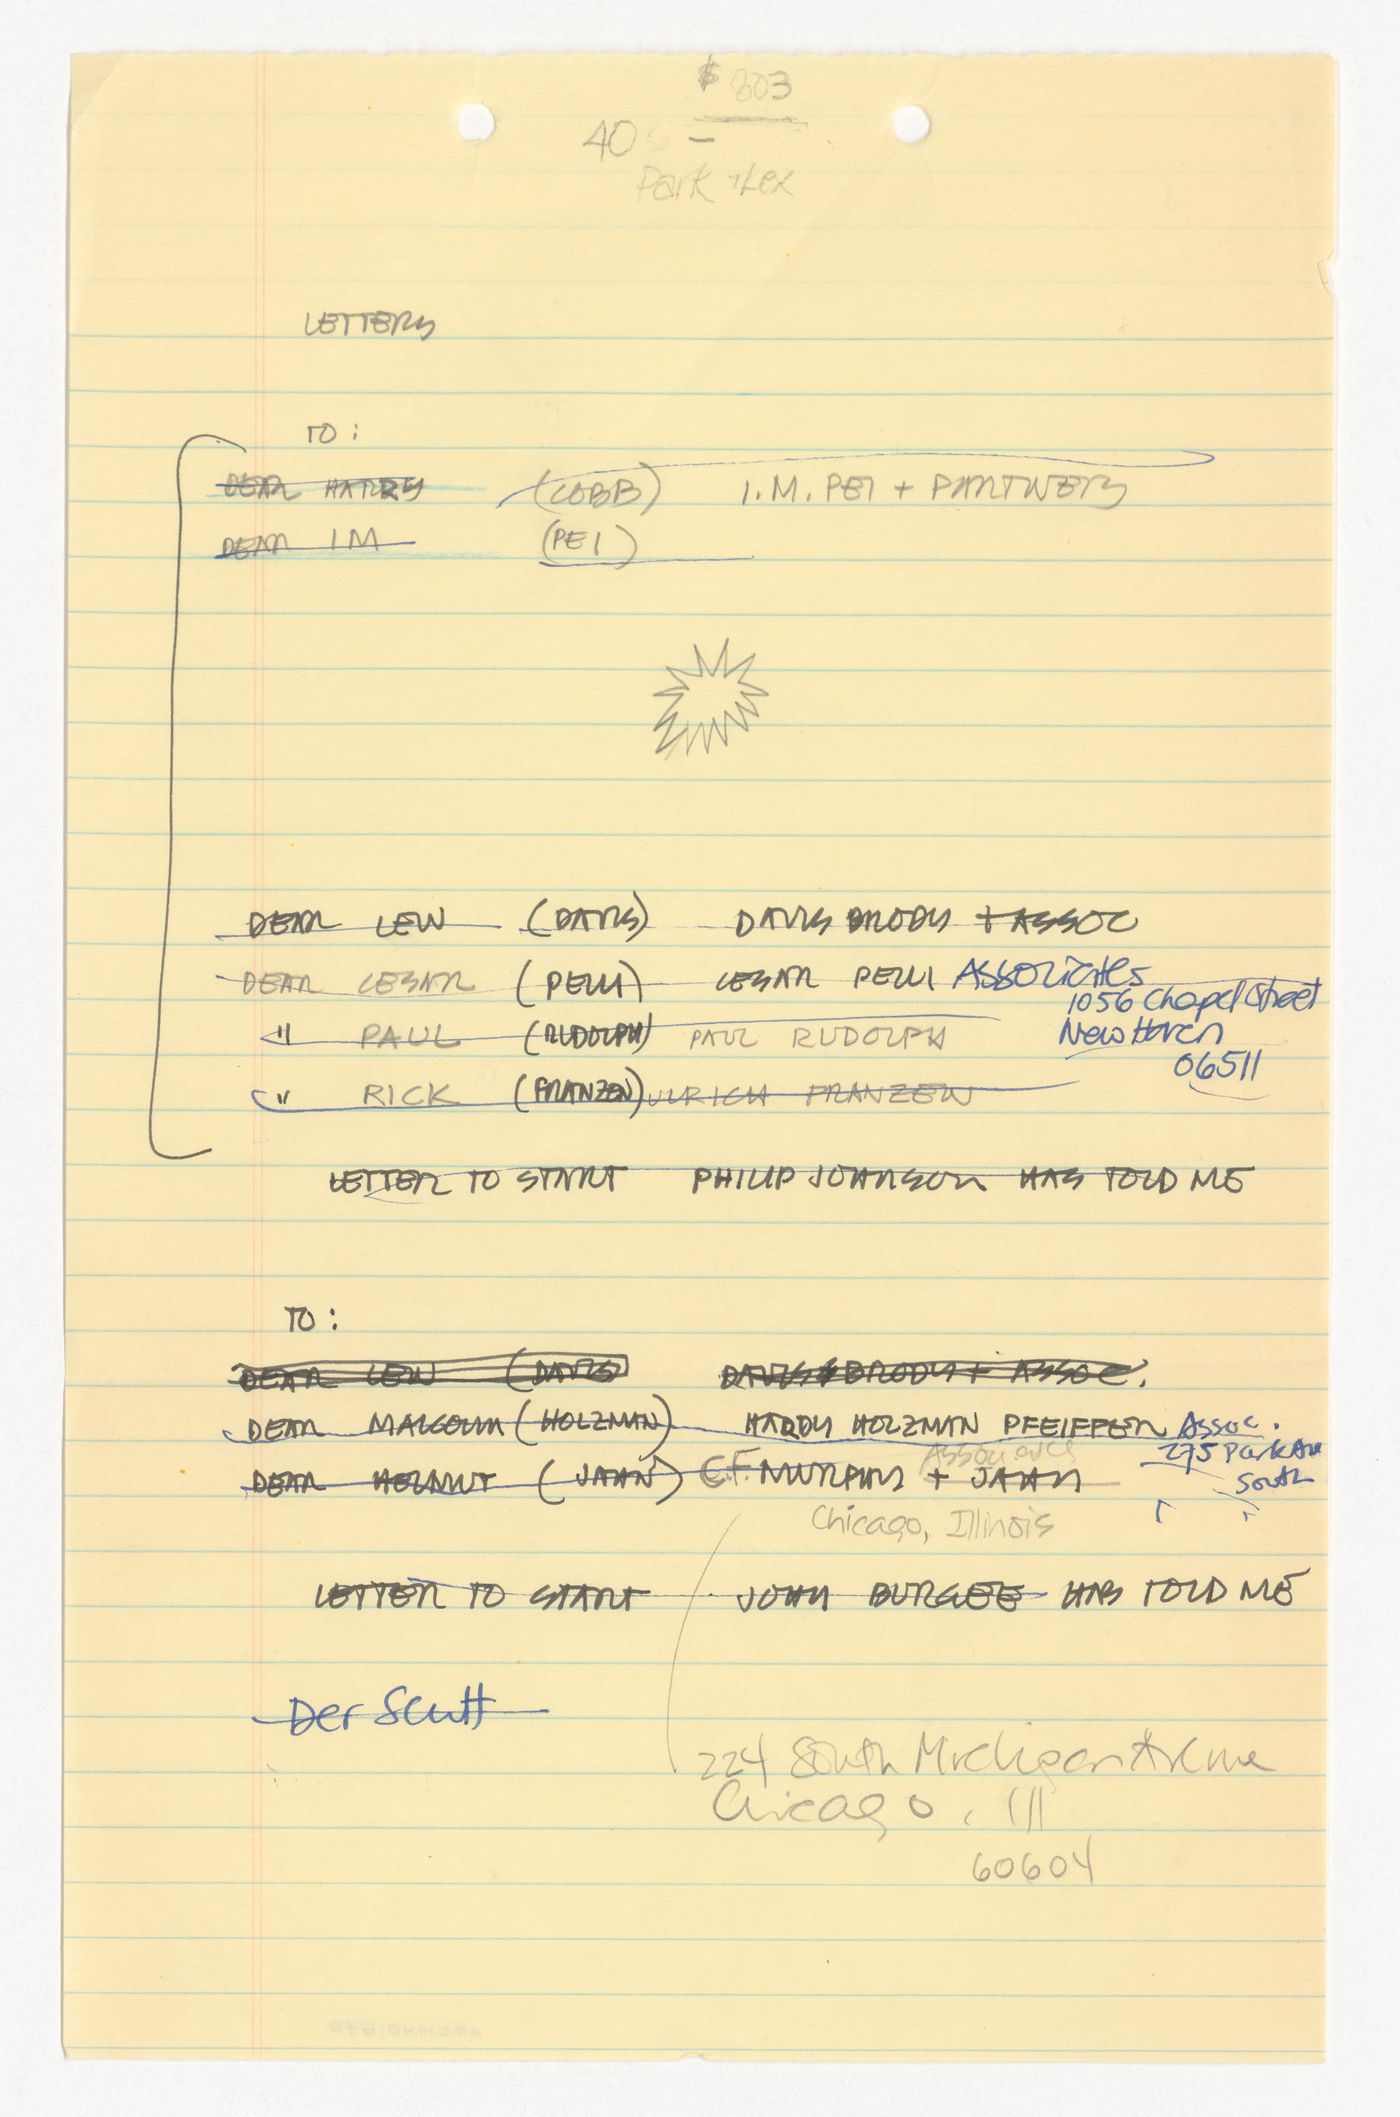 $ 803
40s —
Park + Lex
LETTERS
TO:
DEAR HARRY (COBB) I.M. PEI + PARTNERS
DEAR IM (PEI)
DEAR LEW (DAVIS) DAVIS BRODY + ASSOC
DEAR CESAR (PELLI) CESAR PELLI Associates
1056 Chapel Street
" PAUL (RUDOLPH) PAUL RUDOLPH New Haven
06511
" RICK (FRANZEN) ULRICH FRANZEN
LETTER TO START PHILIP JOHNSON HAS TOLD ME
TO:
DEAR LEW (DAVIS DAVIS BRODY + ASSOC.
DEAR MALCOLM (HOLZMAN) HARDY HOLZMAN PFEIFFER Assoc.
Associates 275 Park Ave
South
DEAR HELMUT (JAHN) C.F. MURPHY + JAHN
Chicago, Illinois
LETTER TO START JOHN BURGEE HAS TOLD ME
Der Scutt
224 South Michigan Avenue
Chicago, Ill
60604